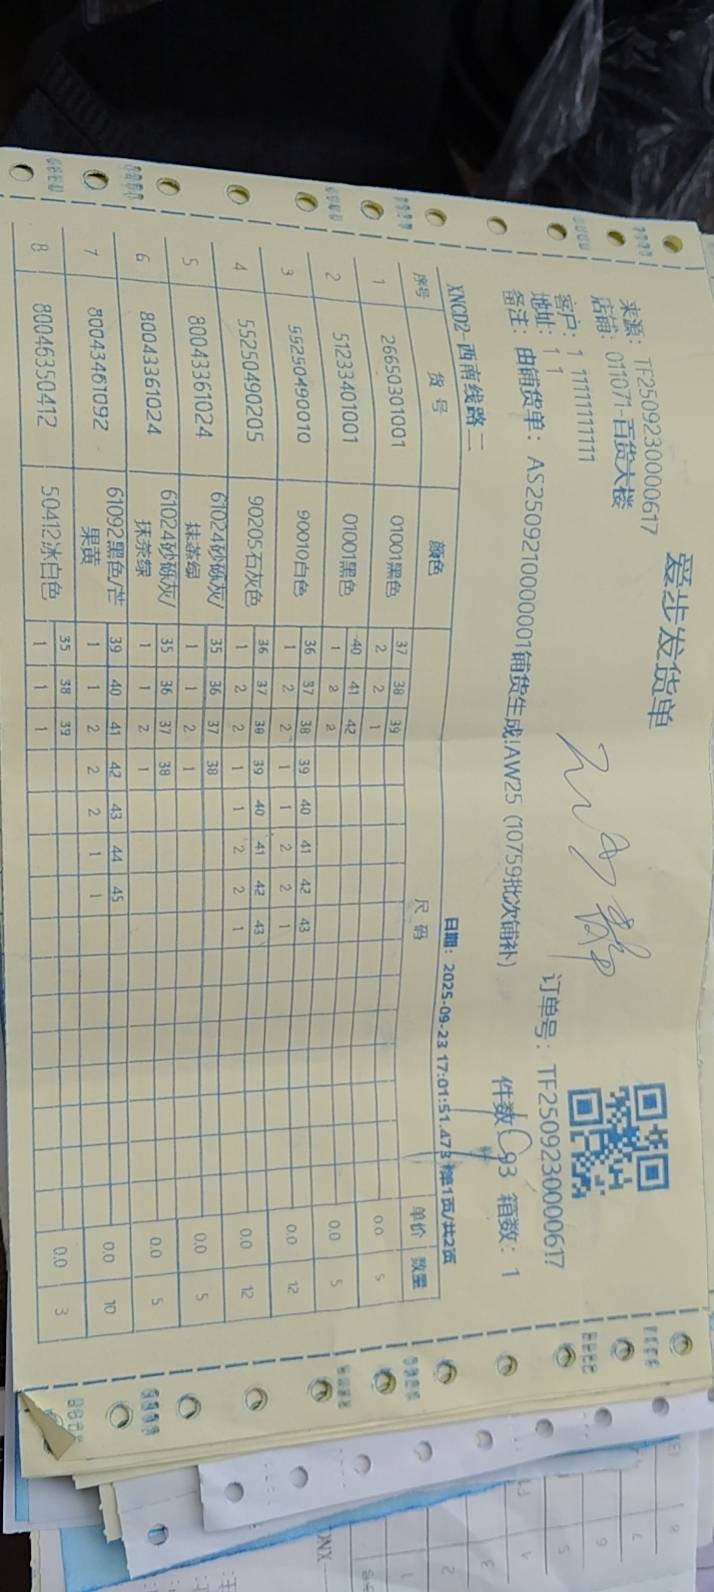 爱步发货单
来源: TF2509230000617
店铺: 011071-百货大楼
客户: 1 11111111111
订单号: TF2509230000617
地址: 1 1
备注: 由铺货单: AS2509210000001铺货生成!AW25 (10759批次铺补)
件数: 93 箱数: 1
XNCD2-西南线路二
日期: 2025-09-23 17:01:51.473 第1页/共2页
序号 货号 颜色 尺码 单价 数量
37 38 39
1 26650301001 01001黑色 2 2 1 0.0 5
40 41 42
2 51233401001 01001黑色 1 2 2 0.0 5
36 37 38 39 40 41 42 43
3 55250490010 90010白色 1 2 2 1 1 2 2 1 0.0 12
36 37 38 39 40 41 42 43
4 55250490205 90205石灰色 1 2 2 1 1 2 2 1 0.0 12
61024砂砾灰/ 35 36 37 38
5 80043361024 抹茶绿 1 1 2 1 0.0 5
61024砂砾灰/ 35 36 37 38
6 80043361024 抹茶绿 1 1 2 1 0.0 5
61092黑色/芒 39 40 41 42 43 44 45
7 80043461092 果黄 1 1 2 2 2 1 1 0.0 10
35 38 39
8 80046350412 50412冰白色 1 1 1 0.0 3